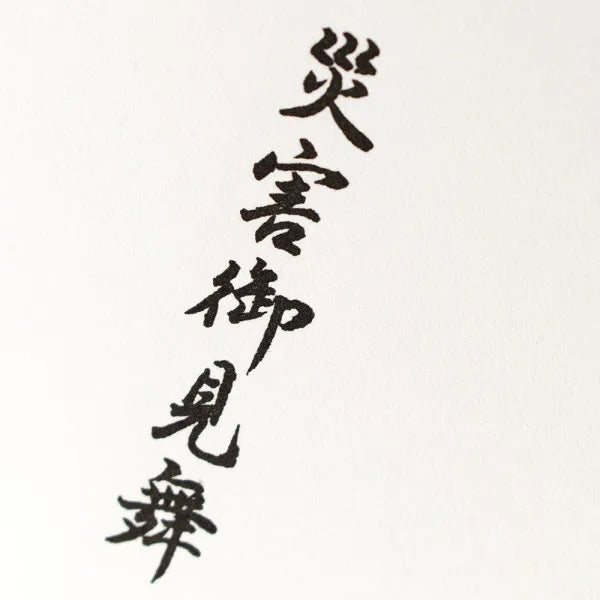 災害御見舞